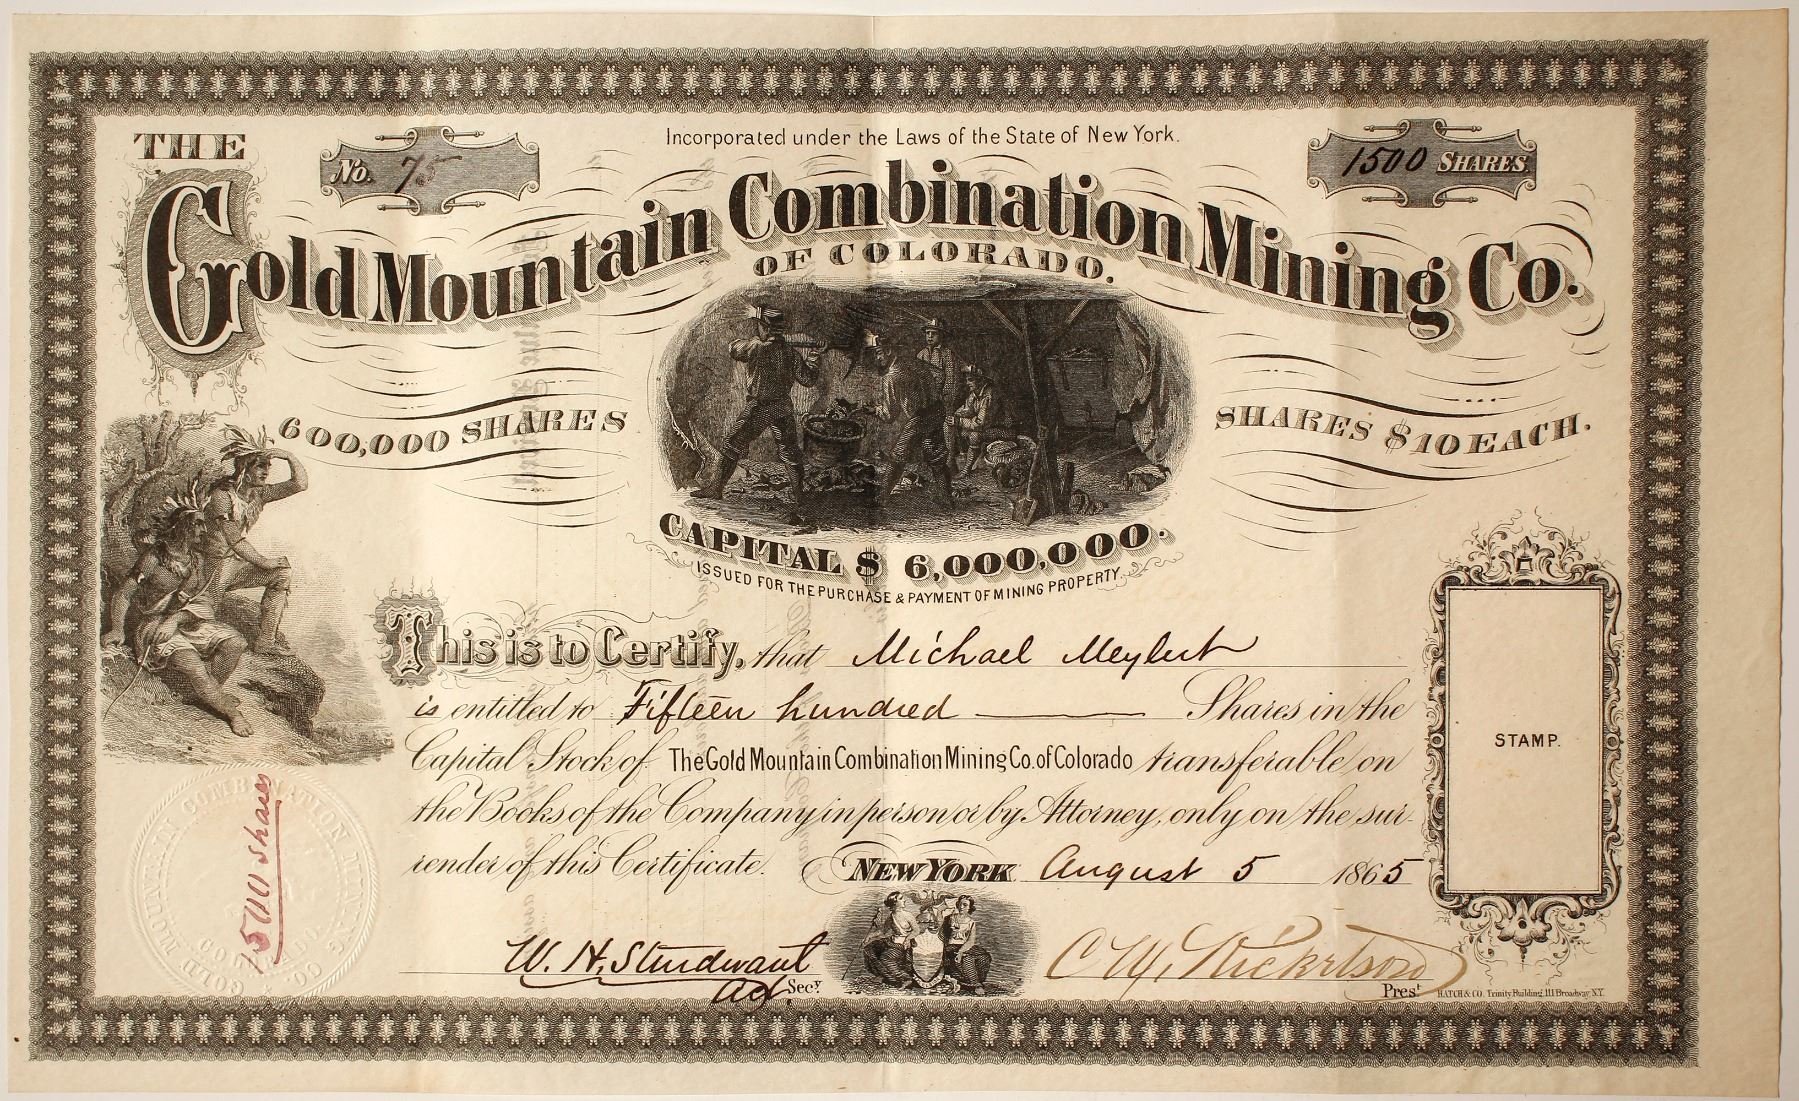 THE
No. 75
Incorporated under the Laws of the State of New York.
1500 SHARES.
Gold Mountain Combination Mining Co.
OF COLORADO.
600,000 SHARES
SHARES $10 EACH.
CAPITAL $ 6,000,000.
ISSUED FOR THE PURCHASE & PAYMENT OF MINING PROPERTY
This is to Certify, that Michael Meylert
is entitled to Fifteen hundred Shares in the
Capital Stock of The Gold Mountain Combination Mining Co. of Colorado transferable on
the Books of the Company in person or by Attorney, only on the sur-
render of this Certificate.
NEW YORK August 5 1865
STAMP.
GOLD MOUNTAIN COMBINATION MINING CO.
COLORADO.
1500 shares
W. H. Sturdevant
Secy.
C. W.
Prest.
HATCH & CO. Trinity Building 111 Broadway N.Y.